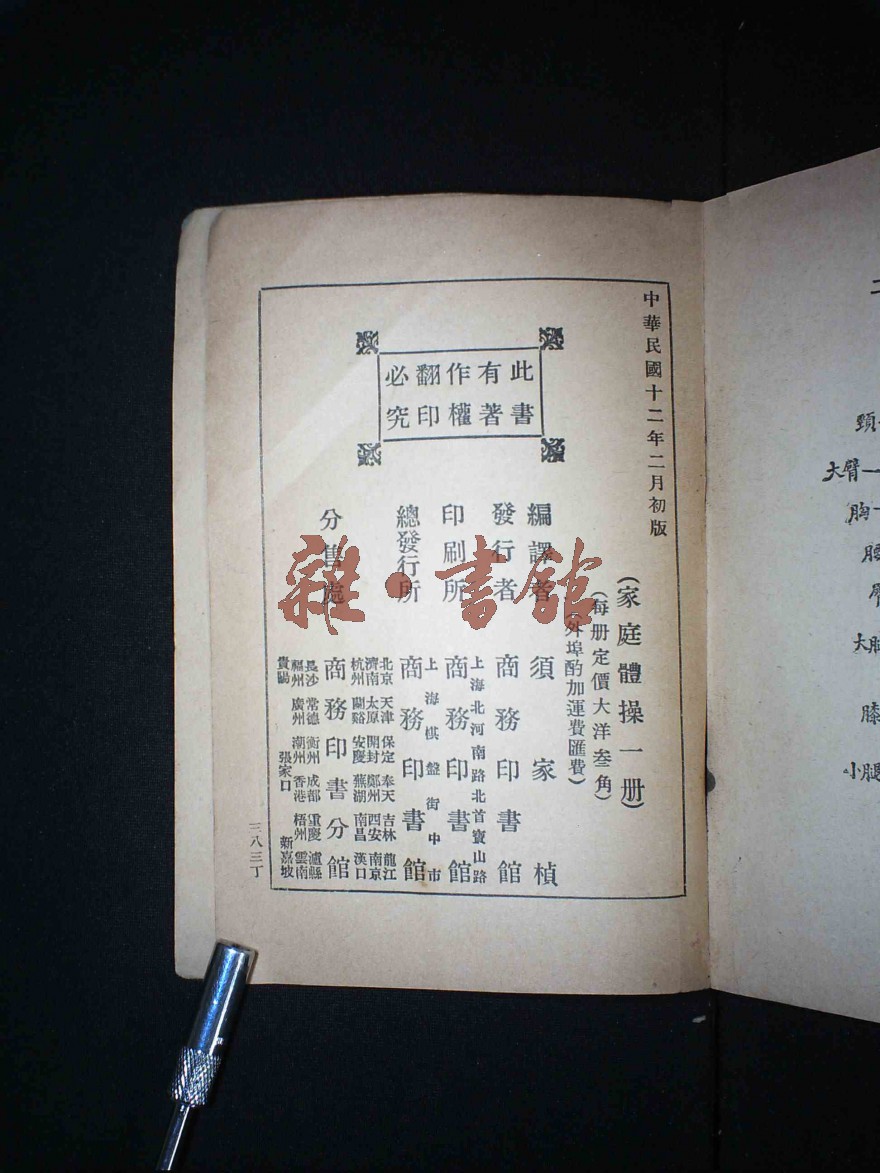 中華民國十二年二月初版
此書
有著
作權
翻印
必究
(家庭體操一册)
(每册定價大洋叁角)
(外埠酌加運費匯費)
編譯者 須家楨
發行者 商務印書館
上海北河南路北首寶山路
印刷所 商務印書館
上海棋盤街中市
總發行所 商務印書館
北京 天津 保定 奉天 吉林 龍江
濟南 太原 開封 鄭州 西安 南京
杭州 蘭谿 安慶 蕪湖 南昌 漢口
分售處 商務印書分館
長沙 常德 衡州 成都 重慶 瀘縣
福州 廣州 潮州 香港 梧州 雲南
貴陽 張家口 新嘉坡
三八三丁
雜·書館
頸
大臂
胸
腰
臀
膝
小腿